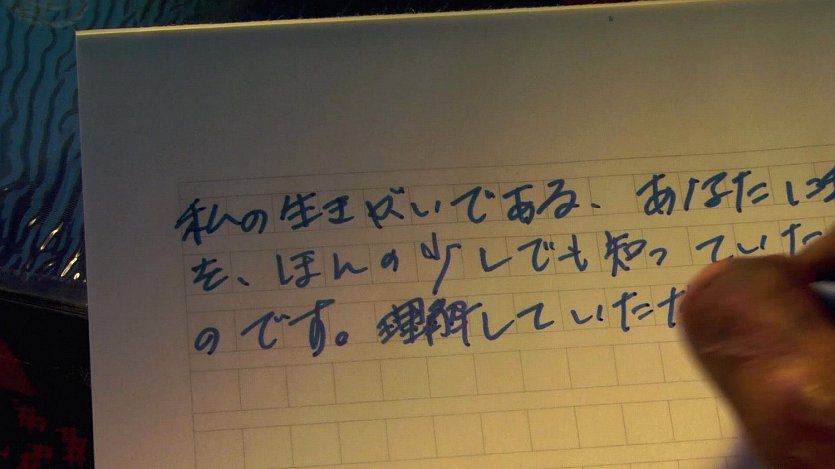 私の生きがいである、あなたに
を、ほんの少しでも知っていた
のです。理解していただ